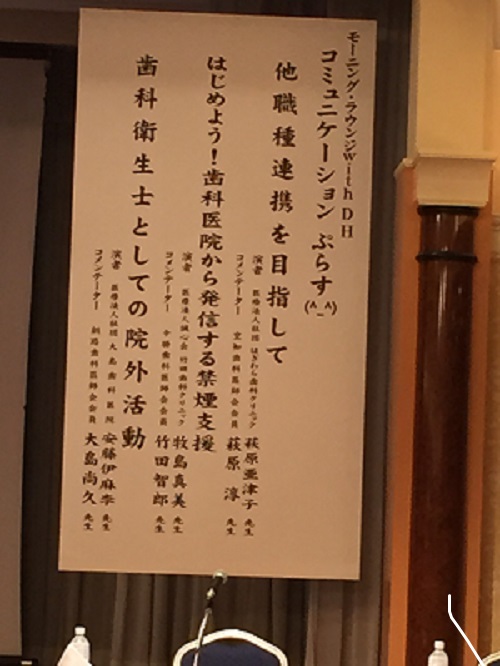 モーニング・ラウンジwith DH
コミュニケーション ぷらす(^_^)
他職種連携を目指して
演者 医療法人社団 はぎわら歯科クリニック 萩原亜津子 先生
コメンテーター 空知歯科医師会会員 萩原 淳 先生
はじめよう！歯科医院から発信する禁煙支援
演者 医療法人誠心会 竹田歯科クリニック 牧島真美 先生
コメンテーター 十勝歯科医師会会員 竹田智郎 先生
歯科衛生士としての院外活動
演者 医療法人社団 大島歯科医院 安藤伊麻季 先生
コメンテーター 釧路歯科医師会会員 大島尚久 先生